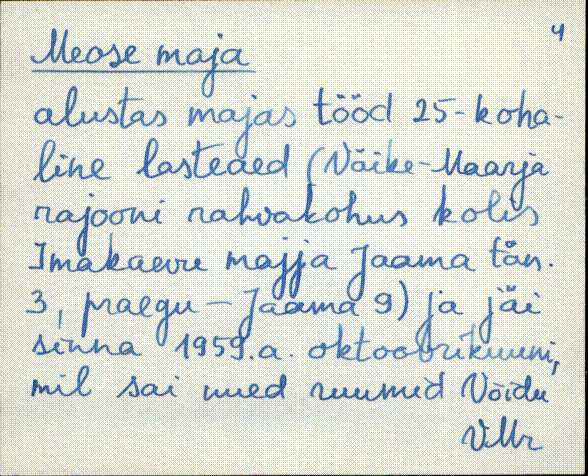 4
Meose maja
alustas majas tööd 25-koha-
line lasteaed (Väike-Maarja
rajooni rahvakohus kolis
Imakaevu majja Jaama tän.
3, praegu – Jaama 9) ja jäi
sinna 1959.a. oktoobrikuuni,
mil sai uued ruumid Võidu
VMr